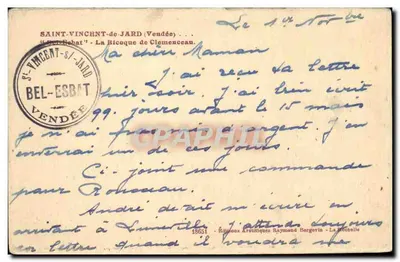 Le 1er Novbre
SAINT-VINCENT-de JARD (Vendée) ...
"Bel-Esbat" - La Bicoque de Clemenceau.
Ma chère Maman
ST-VINCENT-S/-JARD
BEL-ESBAT
VENDÉE
J'ai reçu ta lettre
hier soir. J'ai bien écrit
jours avant le 15 mais
je n'ai pas d'argent. J'en
enverrai un de ces jours.
Ci-joint une commande
pour Rousseau.
André devait m'écrire en
arrivant à Luneville j'attends toujours
sa lettre quand il voudra me
18651 - Editions Artistiques Raymond Bergevin - La Rochelle